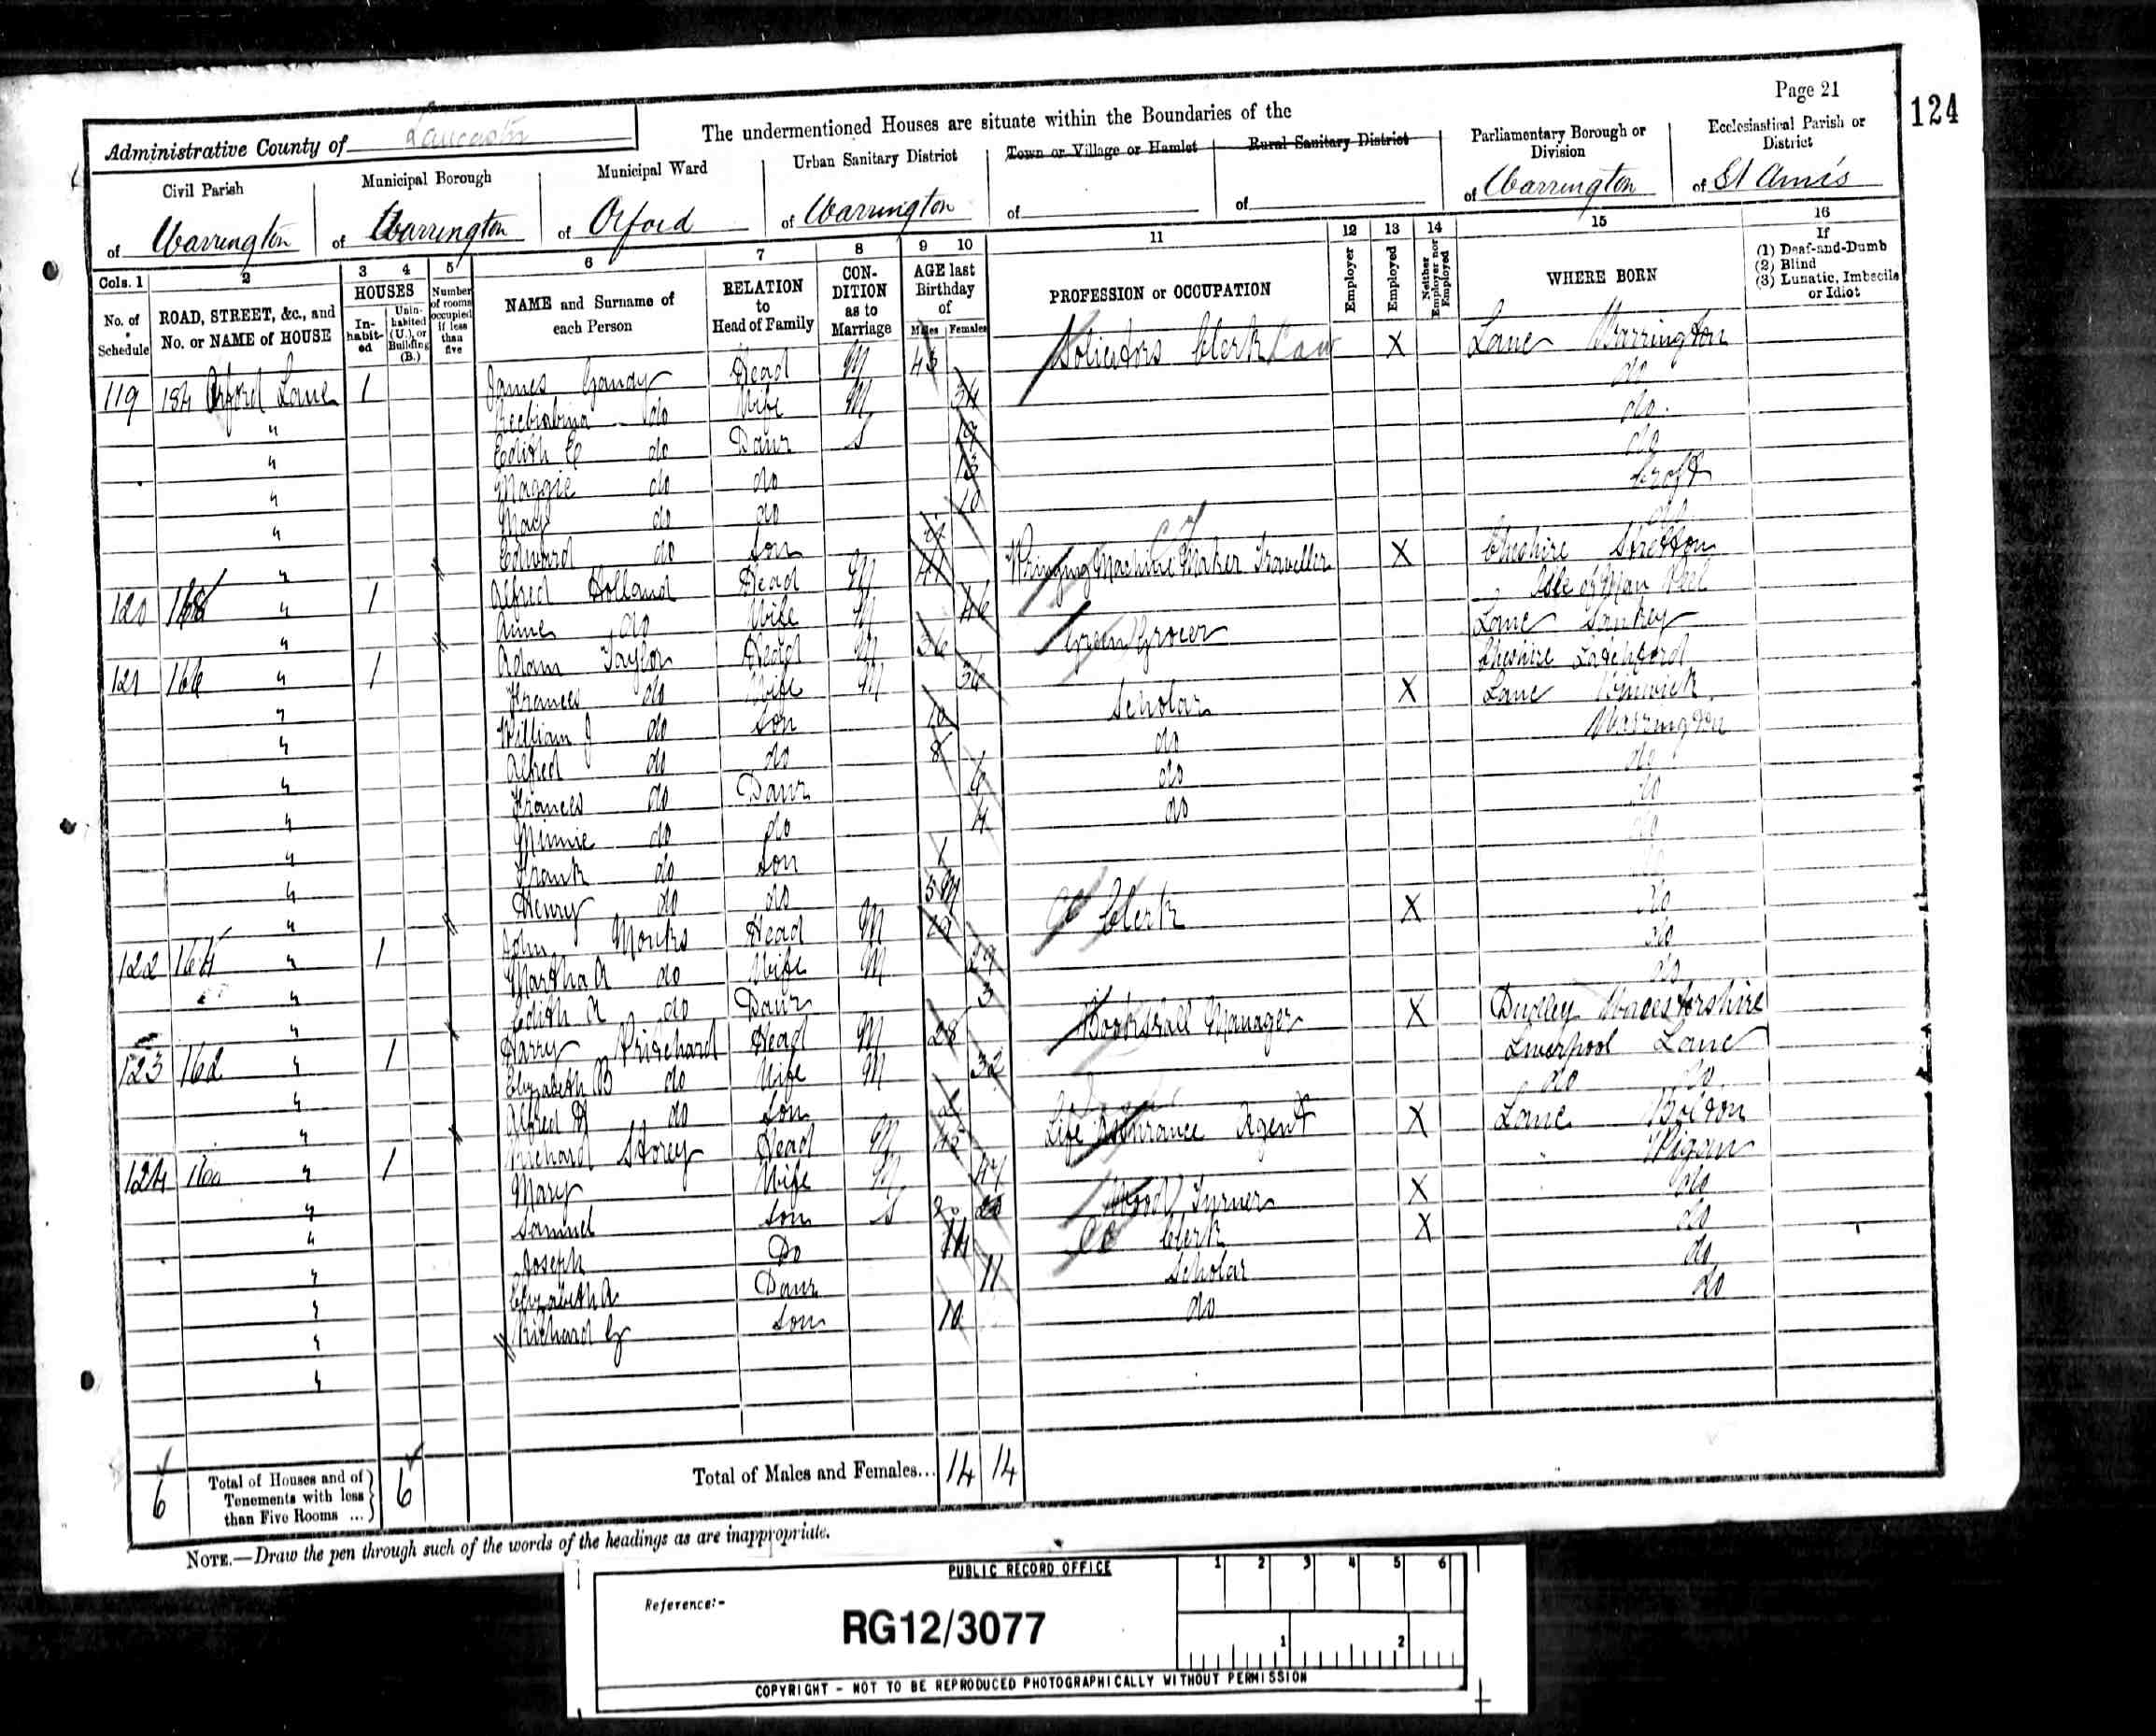 Page 21
124
Administrative County of Lancaster
The undermentioned Houses are situate within the Boundaries of the
Civil Parish
of Warrington
Municipal Borough
of Warrington
Municipal Ward
of Orford
Urban Sanitary District
of Warrington
Town or Village or Hamlet
of
Rural Sanitary District
of
Parliamentary Borough or Division
of Warrington
Ecclesiastical Parish or District
of St Ann's
Cols. 1 2 3 4 5 6 7 8 9 10 11 12 13 14 15 16
No. of Schedule
ROAD, STREET, &c., and No. or NAME of HOUSE
HOUSES
In-habit-ed
Unin-habited (U.), or Building (B.)
Number of rooms occupied if less than five
NAME and Surname of each Person
RELATION to Head of Family
CON-DITION as to Marriage
AGE last Birthday of
Males Females
PROFESSION or OCCUPATION
Employer
Employed
Neither Employer nor Employed
WHERE BORN
If
(1) Deaf-and-Dumb
(2) Blind
(3) Lunatic, Imbecile or Idiot
119 184 Orford Lane 1 James Gandy Head M 43 Solicitors Clerk Law X Lanc Warrington
" do Wife M 34 do
" Edith E do Daur S do
" Maggie do do 13 do
" May do do 10 Croft
" Edward do Son do
120 168 " 1 Alfred Holland Head M Wringing Machine Maker Traveller X Cheshire Stretton
" Anne do Wife M 46 Isle of Man Peel
121 166 " 1 Adam Taylor Head M 36 Green Grocer Lanc Sankey
" Frances do Wife M 36 Cheshire Latchford
" William J do Son 10 Scholar X Lanc Winwick
" Alfred do do 8 do Warrington
" Frances do Daur 6 do do
" Minnie do do 4 do do
" Frank do Son 1 do
" Henry do do 5M do
122 164 " 1 John Monks Head M Clerk X do
" Martha A do Wife M 29 do
" Edith A do Daur 3 do
123 162 " 1 Harry Prischard Head M 28 Bookstall Manager X Dudley Worcestershire
" Elizabeth B do Wife M 32 Liverpool Lanc
" Alfred H do Son 2 do do
124 160 " 1 Richard Storey Head M 45 Life Assurance Agent X Lanc Bolton
" Mary Wife M 47 Wigan
" Samuel Son S 20 Wood Turner X do
" Joseph Do 14 Clerk X do
" Elizabeth A Daur 11 Scholar do
" Richard G Son 10 do do
6 Total of Houses and of Tenements with less than Five Rooms ... 6
Total of Males and Females... 14 14
NOTE.—Draw the pen through such of the words of the headings as are inappropriate.
PUBLIC RECORD OFFICE
1 2 3 4 5 6
Reference:-
RG12/3077
1 2
COPYRIGHT - NOT TO BE REPRODUCED PHOTOGRAPHICALLY WITHOUT PERMISSION